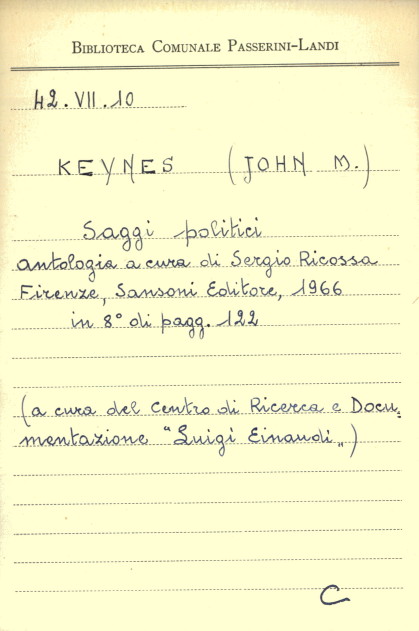 BIBLIOTECA COMUNALE PASSERINI-LANDI
42.VII.10
KEYNES (JOHN M.)
Saggi politici
antologia a cura di Sergio Ricossa
Firenze, Sansoni Editore, 1966
in 8° di pagg. 122
(a cura del Centro di Ricerca e Docu=
mentazione "Luigi Einaudi„)
C